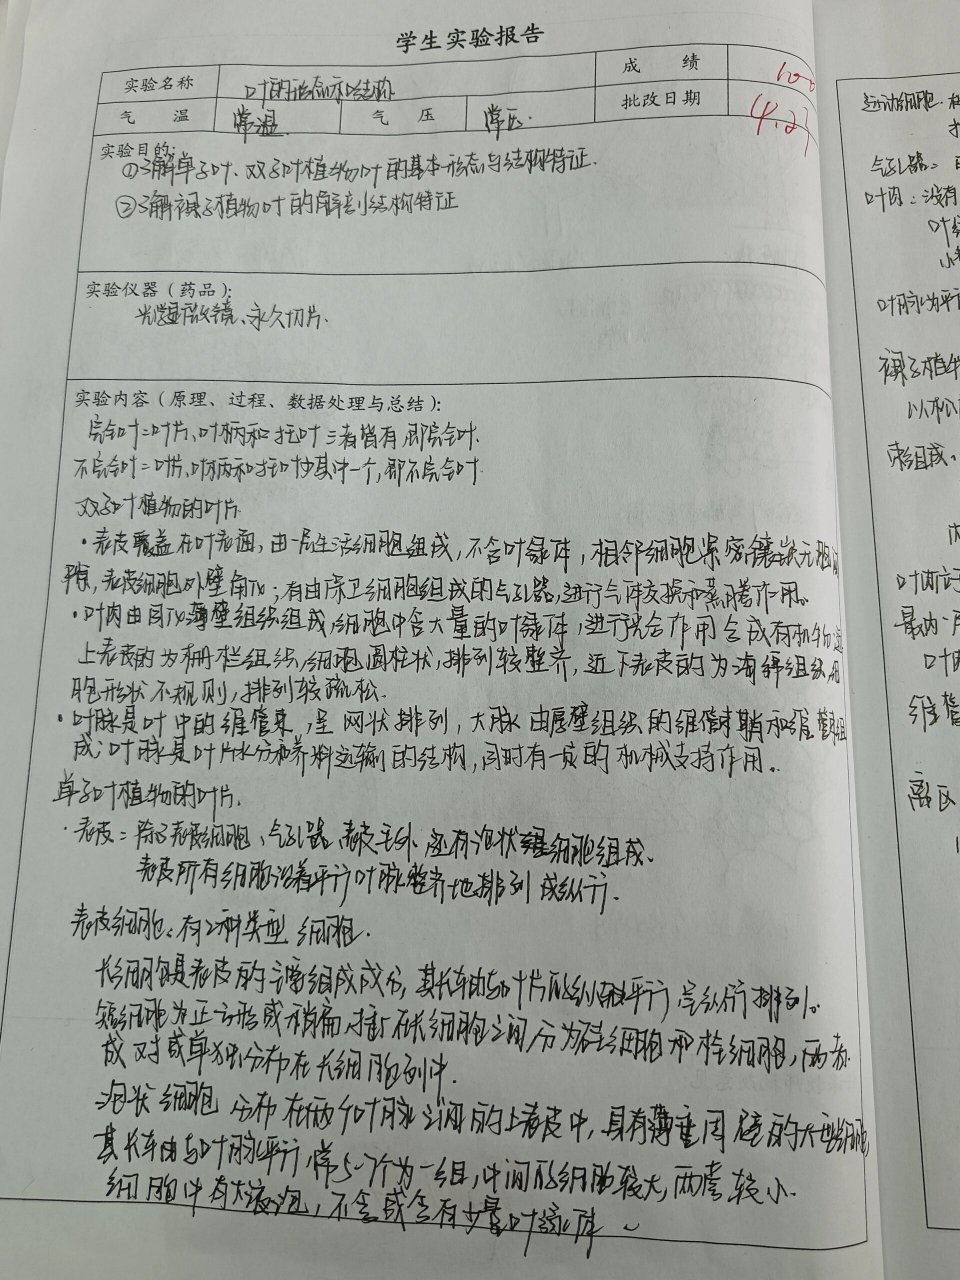 学生实验报告
实验名称 叶的形态和结构 成绩 100
气温 常温 气压 常压 批改日期 4.27
实验目的:
①了解单子叶、双子叶植物叶的基本形态与结构特证.
②了解裸子植物叶的解剖结构特证
实验仪器(药品):
光学显微镜、永久切片.
实验内容(原理、过程、数据处理与总结):
完全叶=叶片、叶柄和托叶三者皆有,即完全叶.
不完全叶=叶片、叶柄和托叶少其中一个,即不完全叶
双子叶植物的叶片
·表皮覆盖在叶表面,由一层生活细胞组成,不含叶绿体,相邻细胞紧密镶嵌无胞间
隙,表皮细胞外壁角化;有由保卫细胞组成的气孔器,进行气体交换和蒸腾作用。
·叶肉由同化薄壁组织组成,细胞中含大量的叶绿体,进行光合作用合成有机物 近
上表皮的为栅栏组织,细胞圆柱状,排列较整齐,近下表皮的为海绵组织,细
胞形状不规则,排列较疏松.
·叶脉是叶中的维管束,呈网状排列,大脉由厚壁组织的维管束鞘和维管束组
成;叶脉是叶片水分和养料运输的结构,同时有一定的机械支持作用。
单子叶植物的叶片.
·表皮=除了表皮细胞、气孔器、表皮毛外还有泡状细胞组成.
表皮所有细胞沿着平行叶脉整齐地排列成纵行.
表皮细胞:有2种类型细胞.
长细胞是表皮的主要组成成分,其长轴与叶片的纵轴平行 呈纵行排列.
短细胞为正方形或稍扁,插在长细胞之间,分为硅细胞和栓细胞,两者
成对或单独分布在长细胞列中.
泡状细胞 分布在两个叶脉之间的上表皮中,具有薄垂周壁的大型细胞,
其长轴与叶脉平行,常5-7个为一组,中间的细胞较大,两旁较小.
细胞中有大液泡,不含或含有少量叶绿体
运动细胞.
气孔器:
叶肉:没有
叶脉为平行
裸子植物
以松
束组成.
最内一层
叶肉
维管
离区